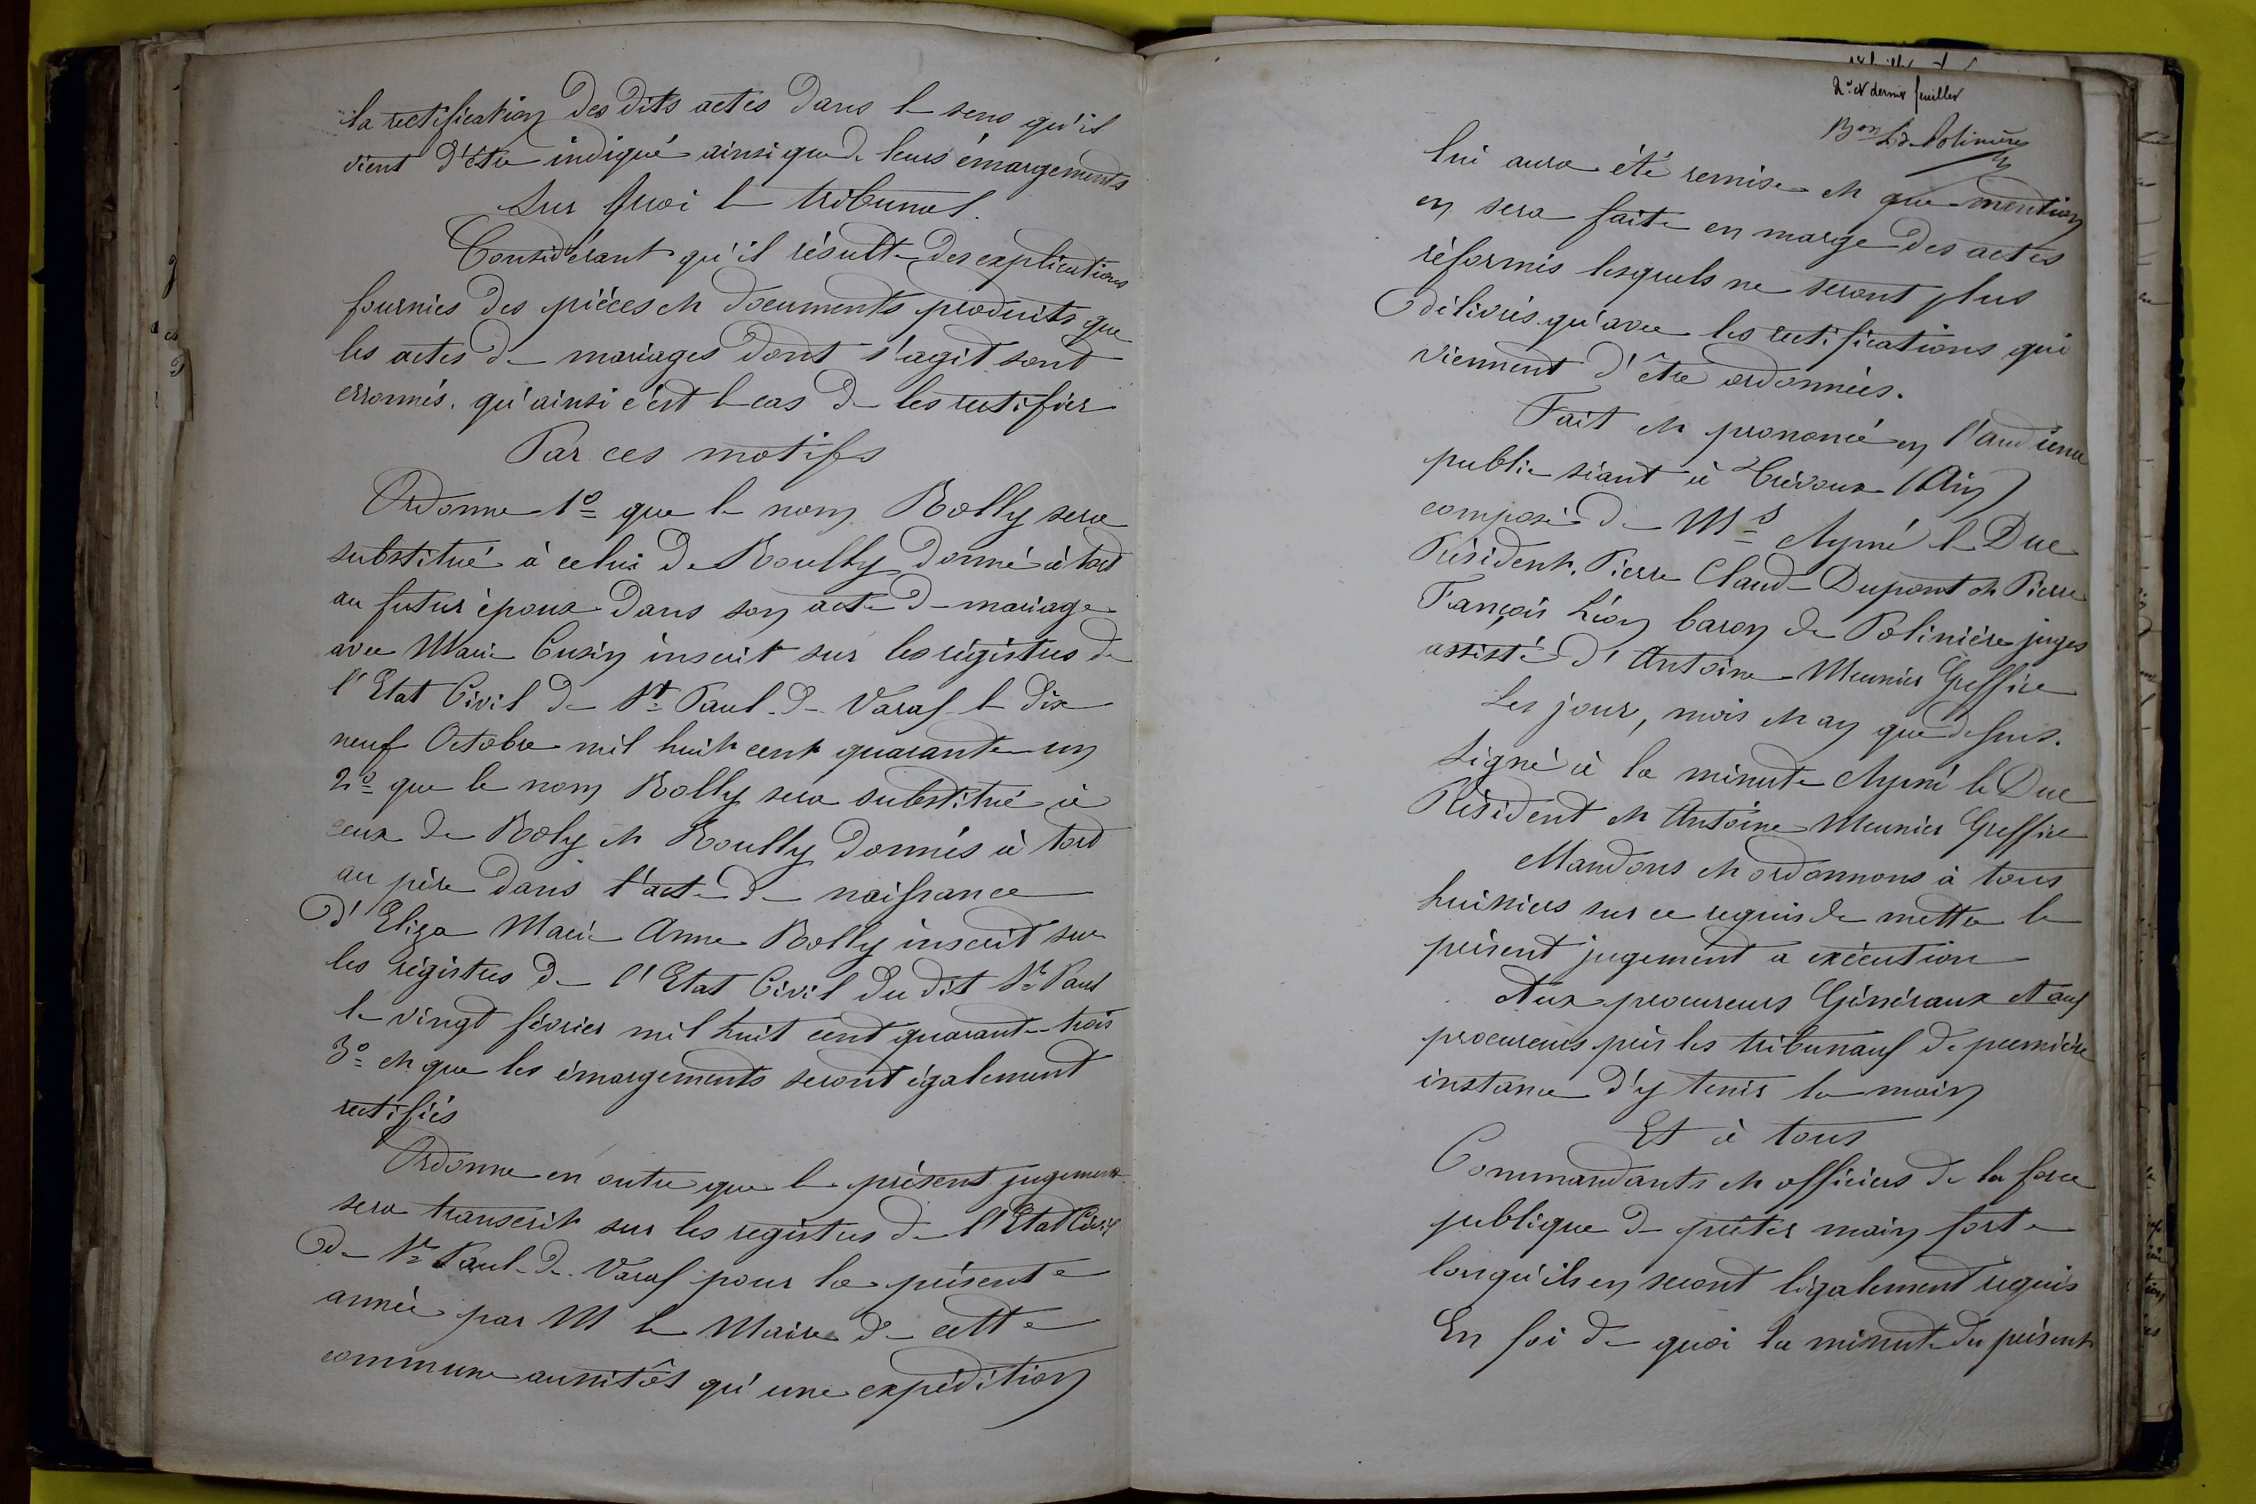 la rectification des dits actes dans le sens qu'il
vient d'être indiqué ainsi que de leurs émargements
Sur quoi le tribunal.
Considérant qu'il résulte des explications
fournies des pièces et documents produits que
les actes de mariages dont s'agit sont
erronnés. qu'ainsi c'est le cas de les rectifier
Par ces motifs
Ordonne 1º que le nom Rolly sera
substitué à celui de Roully donné à tord
au futur époux dans son acte de mariage
avec Marie Cusin inscrit sur les régistres de
l'Etat Civil de St Paul de Varax le dix
neuf Octobre mil huit cent quarante un
2º que le nom Rolly sera substitué à
ceux de Roly et Roully donnés à tord
au père dans l'acte de naissance
d'Eliza Marie Anne Rolly inscrit sur
les régistres de l'Etat Civil du dit St Paul
le vingt février mil huit cent quarante trois
3º et que les émargements seront également
rectifiés
Ordonne en outre que le présent jugement
sera transcrit sur les registres de l'Etat Civil
de St Paul de Varax pour la présente
année par M le Maire de cette
commune aussitôt qu'une expédition
2e et dernier feuillet
Bon L de Polinière
lui aura été remise et que mention
en sera faite en marge des actes
réformés lesquels ne seront plus
délivrés qu'avec les rectifications qui
viennent d'être ordonnées.
Fait et prononcé en l'audience
public séant à Trévoux (Ain)
composé de Ms Aymé le Duc
Président. Pierre Claude Dupont et Pierre
François Léon baron de Polinière juges
assisté d'Antoine Meunier Greffier
Les jour, mois et an que dessus.
Signé à la minute Aymé le Duc
Président et Antoine Meunier Greffier
Mandons et ordonnons à tous
huissiers sur ce requis de mettre le
présent jugement a exécution
Aux procureurs Généraux et aux
procureurs près les tribunaux de première
instance d'y tenir la main
Et à tous
Commandants et officiers de la force
publique de prêter main forte
lorsqu'ils en seront légalement requis
En foi de quoi la minute du présent